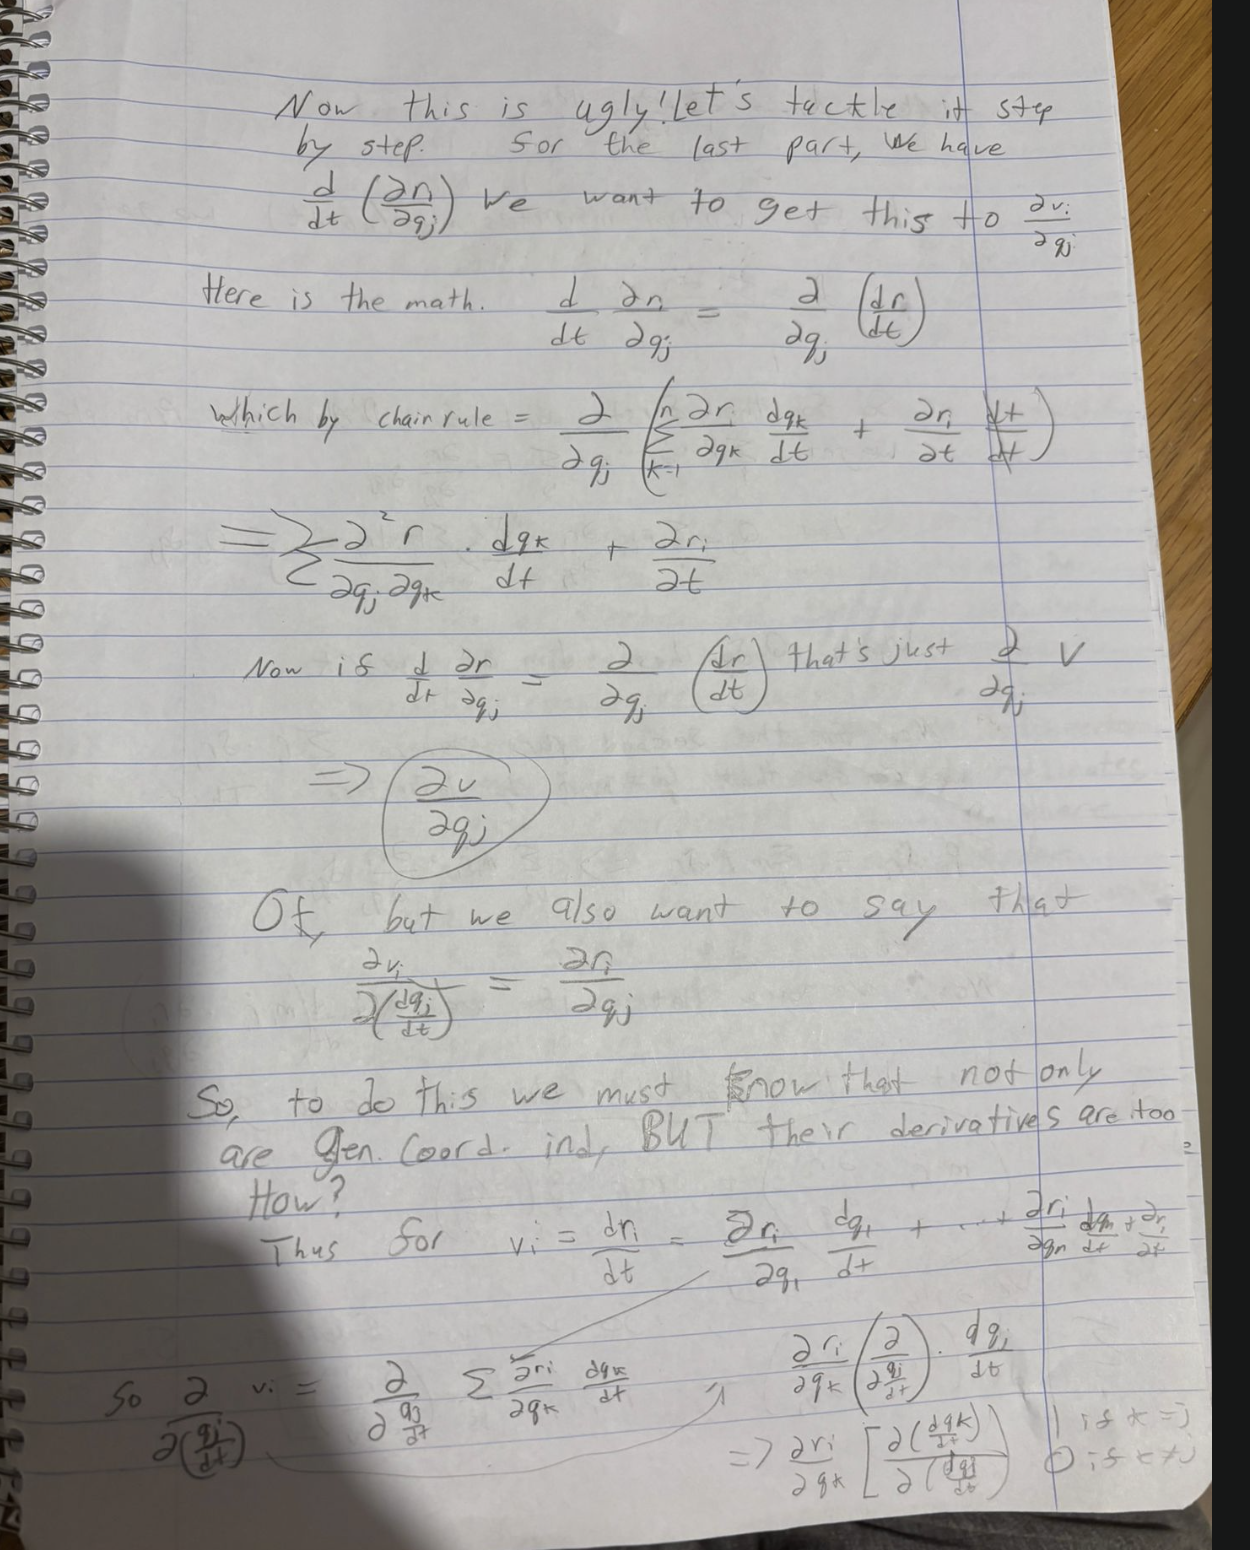 Now this is ugly! Let's tackle it step
by step. For the last part, we have
d/dt (∂ri/∂qj) We want to get this to ∂vi/∂qj
Here is the math. d/dt ∂ri/∂qj = ∂/∂qj (dr/dt)
Which by chain rule = ∂/∂qj (n Σ k=1 ∂ri/∂qk dqk/dt + ∂ri/∂t dt/dt)
=> Σ ∂²r/∂qj∂qk · dqk/dt + ∂ri/∂t
Now if d/dt ∂r/∂qj = ∂/∂qj (dr/dt) that's just ∂/∂qj v
=> ∂v/∂qj
Ok, but we also want to say that
∂vi/∂(dqj/dt) = ∂ri/∂qj
So, to do this we must know that not only
are gen. coord. ind, BUT their derivatives are too
How?
Thus for vi = dri/dt = ∂ri/∂q1 dq1/dt + ... + ∂ri/∂qn dqn/dt + ∂ri/∂t
So ∂/∂(qj/dt) vi = ∂/∂ qj/dt Σ ∂ri/∂qk dqk/dt
∂ri/∂qk (∂/∂ qj/dt) · dqj/dt
=> ∂ri/∂qk [∂(dqk/dt)/∂(dqj/dt)) 1 if k=j
0 if k≠j